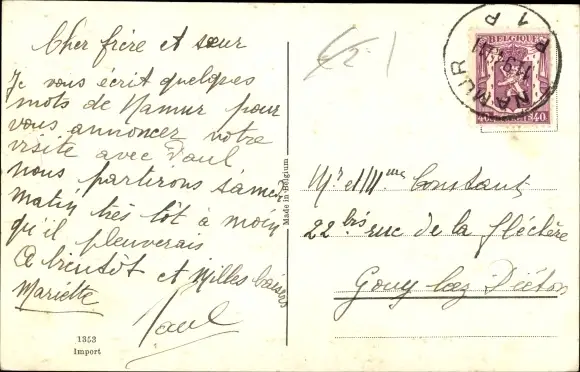 Cher frère et sœur
Je vous écrit quelques
mots de Namur pour
vous annoncer notre
visite avec Paul
nous partirons samedi
matin très tôt à moin
qu'il pleuverais
A bientôt et Milles baisers
Mariette
Paul
1353
Import
Made in Belgium
BELGIQUE
40 40
NAMUR
P 1 P
Mr et Mme Constant
22bis rue de la Fléchère
Gouy lez Piéton